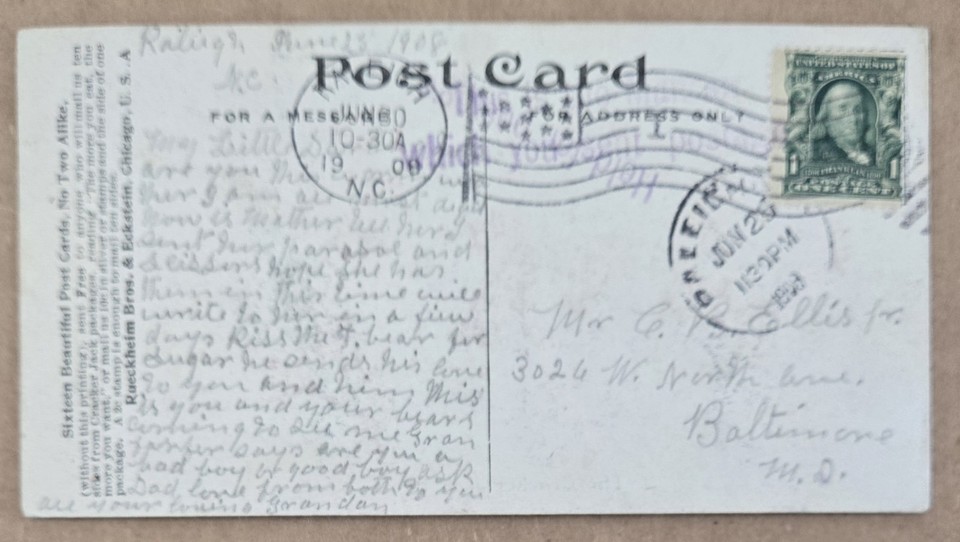 Sixteen Beautiful Post Cards, No Two Alike,
(without this printing), sent Free to anyone who will mail us ten
sides from Cracker Jack packages, reading "The more you eat, the
more you want," or mail us 10c in silver or stamps and the side of one
package. A 2c stamp is enough to mail ten sides.
Rueckheim Bros. & Eckstein, Chicago, U. S. A
Raleigh June 25 1908
N.C.
Post Card
FOR A MESSAGE
FOR ADDRESS ONLY
RALEIGH
JUN
10-30A
19 08
N.C.
Held
which you
UNITED STATES OF
AMERICA
1
FRANKLIN
RALEIGH
JUN 2
1130PM
1908
My Little
are you
I am
now is Mother tell her I
sent her parasol and
scissors hope she has
them in this time will
write to her in a few
days Kiss the t. bear for
Sugar he sends his love
to you and him
is you and your bears
coming to see me Gran
farther says are you a
bad boy or good boy ask
Dad love from both to you
all your loving Grandan
Mr C. Ellis Jr.
3024 W. North ave.
Baltimore
M.D.